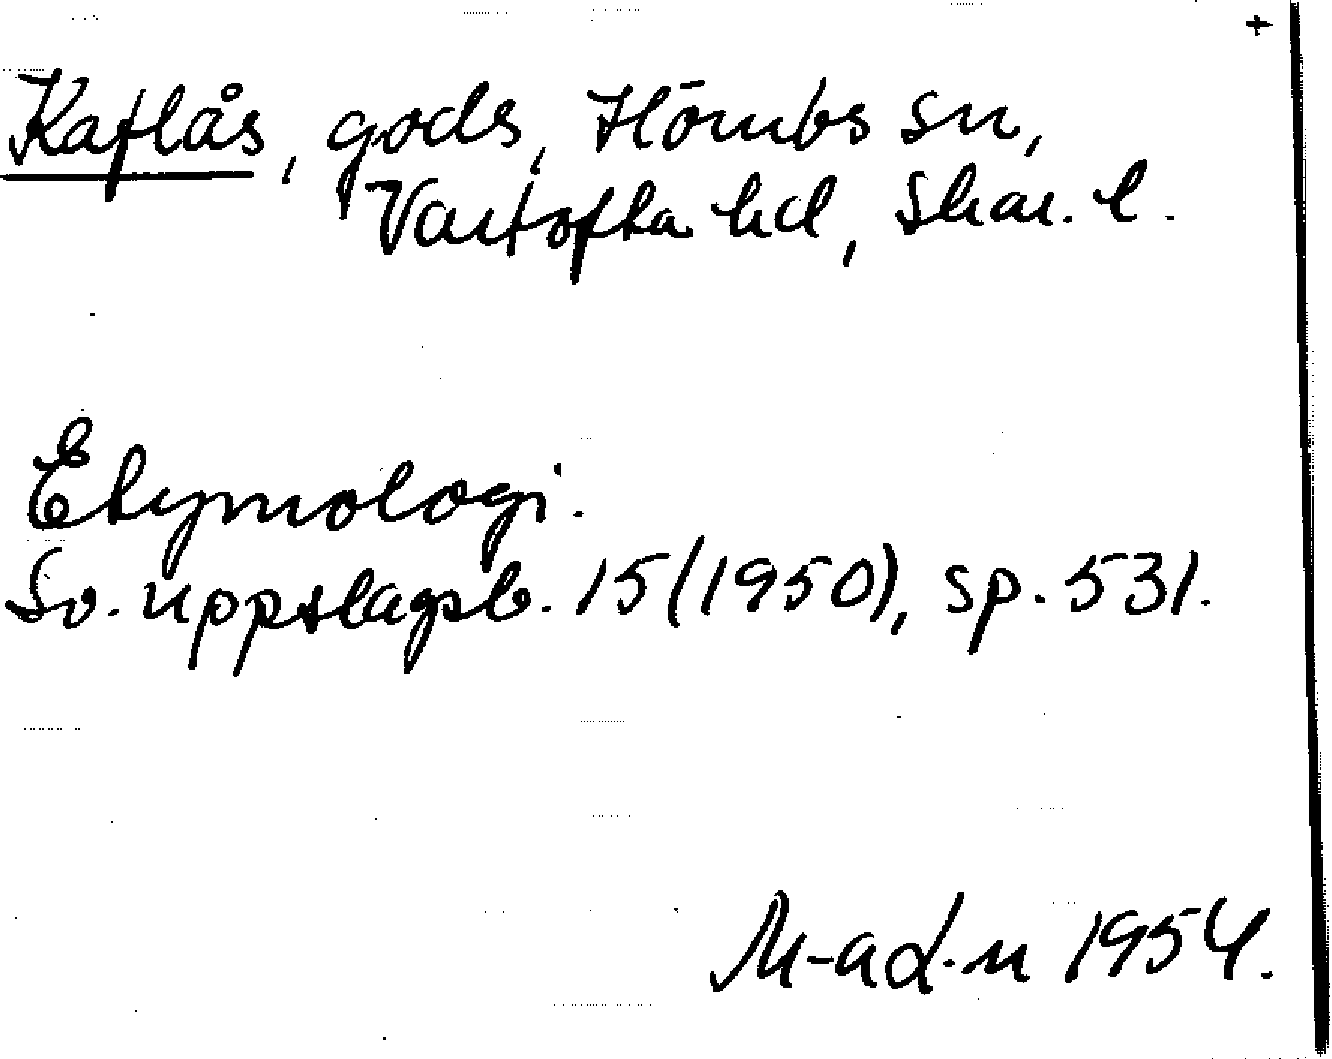 +
Kaflås, gods, Hömbs sn,
Vartofta hd, Skar. l.
Etymologi.
Sv. uppslagsb. 15 (1950), sp. 531.
M-ad-n 1954.